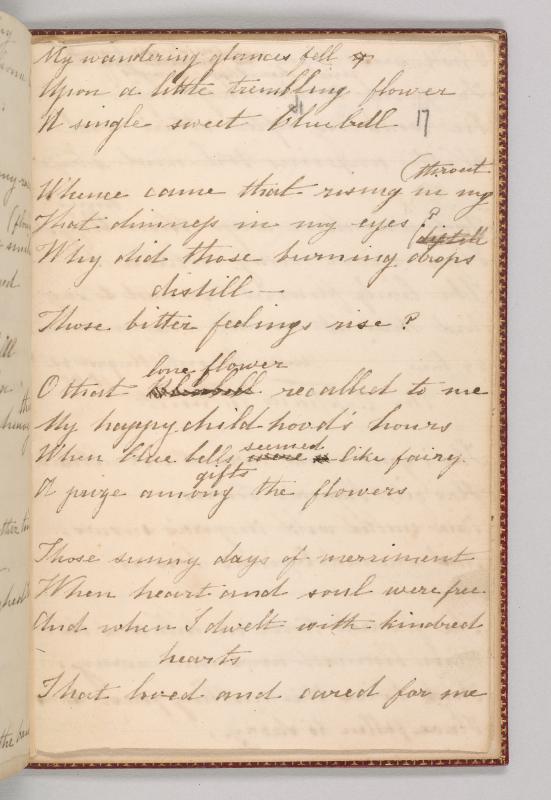 My wandering glances fell
Upon a little trembling flower
A single sweet bluebell 17
Whence came that rising in my
(throat
That dimness in my eyes ?
Why did those burning drops
(distill
distill —
Those bitter feelings rise ?
lone flower
O that bluebell recalled to me
My happy childhood's hours
When blue bells were seemed like fairy
gifts
A prize among the flowers
Those sunny days of merriment
When heart and soul were free
And when I dwelt with kindred
hearts
That loved and cared for me